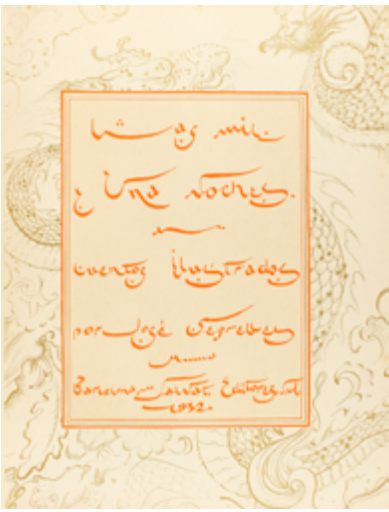 Las mil
y Una Noches.
cuentos Ilustrados
por José Segrelles
Barcelona - Salvat Editores
-1932-